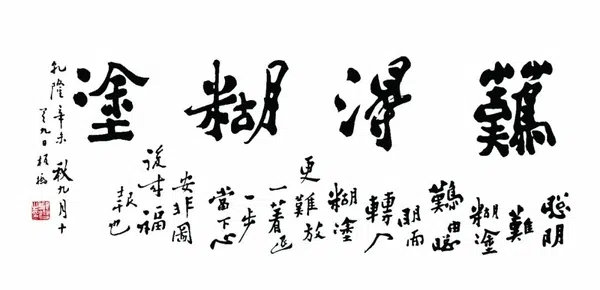 難得糊塗
聰明
難
糊塗
難由聰
明而
轉入
糊塗
更難放
一着退
一步
當下心
安非圖
後來福
報也
乾隆辛未秋九月十
有九日板橋